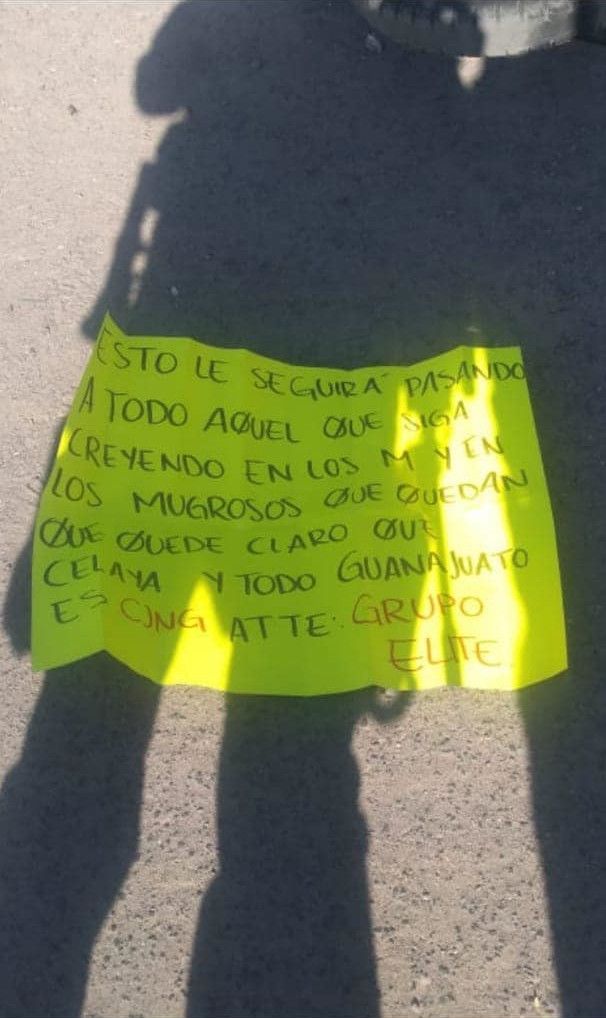 ESTO LE SEGUIRÁ PASANDO
A TODO AQUEL QUE SIGA
CREYENDO EN LOS M Y EN
LOS MUGROSOS QUE QUEDAN
QUE QUEDE CLARO QUE
CELAYA Y TODO GUANAJUATO
ES CJNG ATTE: GRUPO
ELITE